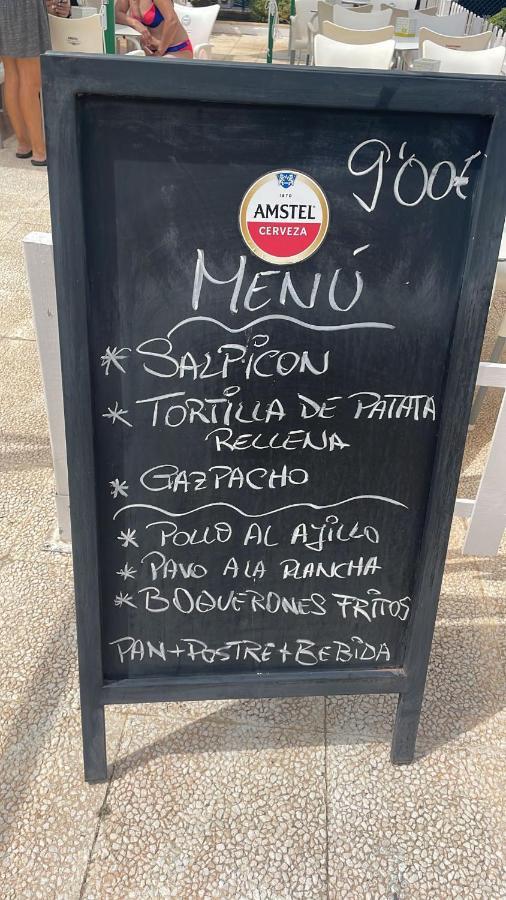 9'00€
1870
AMSTEL
CERVEZA
MENÚ
* SALPICON
* TORTILLA DE PATATA
RELLENA
* GAZPACHO
* POLLO AL AJILLO
* PAVO A LA PLANCHA
* BOQUERONES FRITOS
PAN+POSTRE+BEBIDA